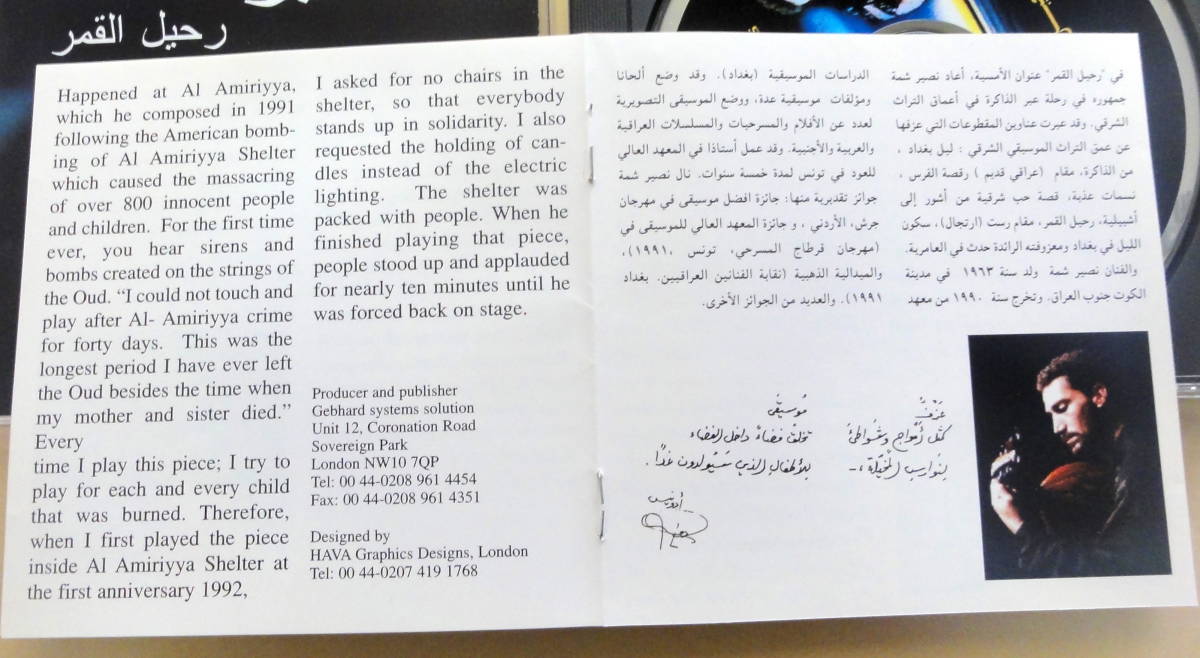 رحيل القمر
Happened at Al Amiriyya,
which he composed in 1991
following the American bomb-
ing of Al Amiriyya Shelter
which caused the massacring
of over 800 innocent people
and children. For the first time
ever, you hear sirens and
bombs created on the strings of
the Oud. “I could not touch and
play after Al- Amiriyya crime
for forty days. This was the
longest period I have ever left
the Oud besides the time when
my mother and sister died.”
Every
time I play this piece; I try to
play for each and every child
that was burned. Therefore,
when I first played the piece
inside Al Amiriyya Shelter at
the first anniversary 1992,
I asked for no chairs in the
shelter, so that everybody
stands up in solidarity. I also
requested the holding of can-
dles instead of the electric
lighting. The shelter was
packed with people. When he
finished playing that piece,
people stood up and applauded
for nearly ten minutes until he
was forced back on stage.
Producer and publisher
Gebhard systems solution
Unit 12, Coronation Road
Sovereign Park
London NW10 7QP
Tel: 00 44-0208 961 4454
Fax: 00 44-0208 961 4351
Designed by
HAVA Graphics Designs, London
Tel: 00 44-0207 419 1768
في "رحيل القمر" عنوان الأمسية، أعاد نصير شمة
جمهوره في رحلة عبر الذاكرة في أعماق التراث
الشرقي. وقد عبرت عناوين المقطوعات التي عزفها
عن عمق التراث الموسيقي الشرقي : ليل بغداد ،
من الذاكرة، مقام (عراقي قديم ) رقصة الفرس ،
نسمات عذبة، قصة حب شرقية من أشور إلى
أشبيلية، رحيل القمر، مقام رست (ارتجال)، سكون
الليل في بغداد ومعزوفته الرائدة حدث في العامرية.
والفنان نصير شمة ولد سنة ١٩٦٣ في مدينة
الكوت جنوب العراق. وتخرج سنة ١٩٩٠ من معهد
الدراسات الموسيقية (بغداد). وقد وضع ألحانا
ومؤلفات موسيقية عدة، ووضع الموسيقى التصويرية
لعدد عن الأفلام والمسرحيات والمسلسلات العراقية
والعربية والأجنبية. وقد عمل أستاذا في المعهد العالي
للعود في تونس لمدة خمسة سنوات. نال نصير شمة
جوائز تقديرية منها: جائزة افضل موسيقى في مهرجان
جرش، الأردني ، و جائزة المعهد العالي للموسيقى في
(مهرجان قرطاج المسرحي، تونس ،١٩٩١)،
والميدالية الذهبية (نقابة الفنانين العراقيين. بغداد
١٩٩١). والعديد من الجوائز الأخرى.
عَزْفٌ
كلّ أمواج وشواطئ
لنوارس المخيّلة ،-
مُوسيقى
تخلق فضاءً داخل الفضاء
للأطفال الذين سَيُولدون غدًا.
أدونيس